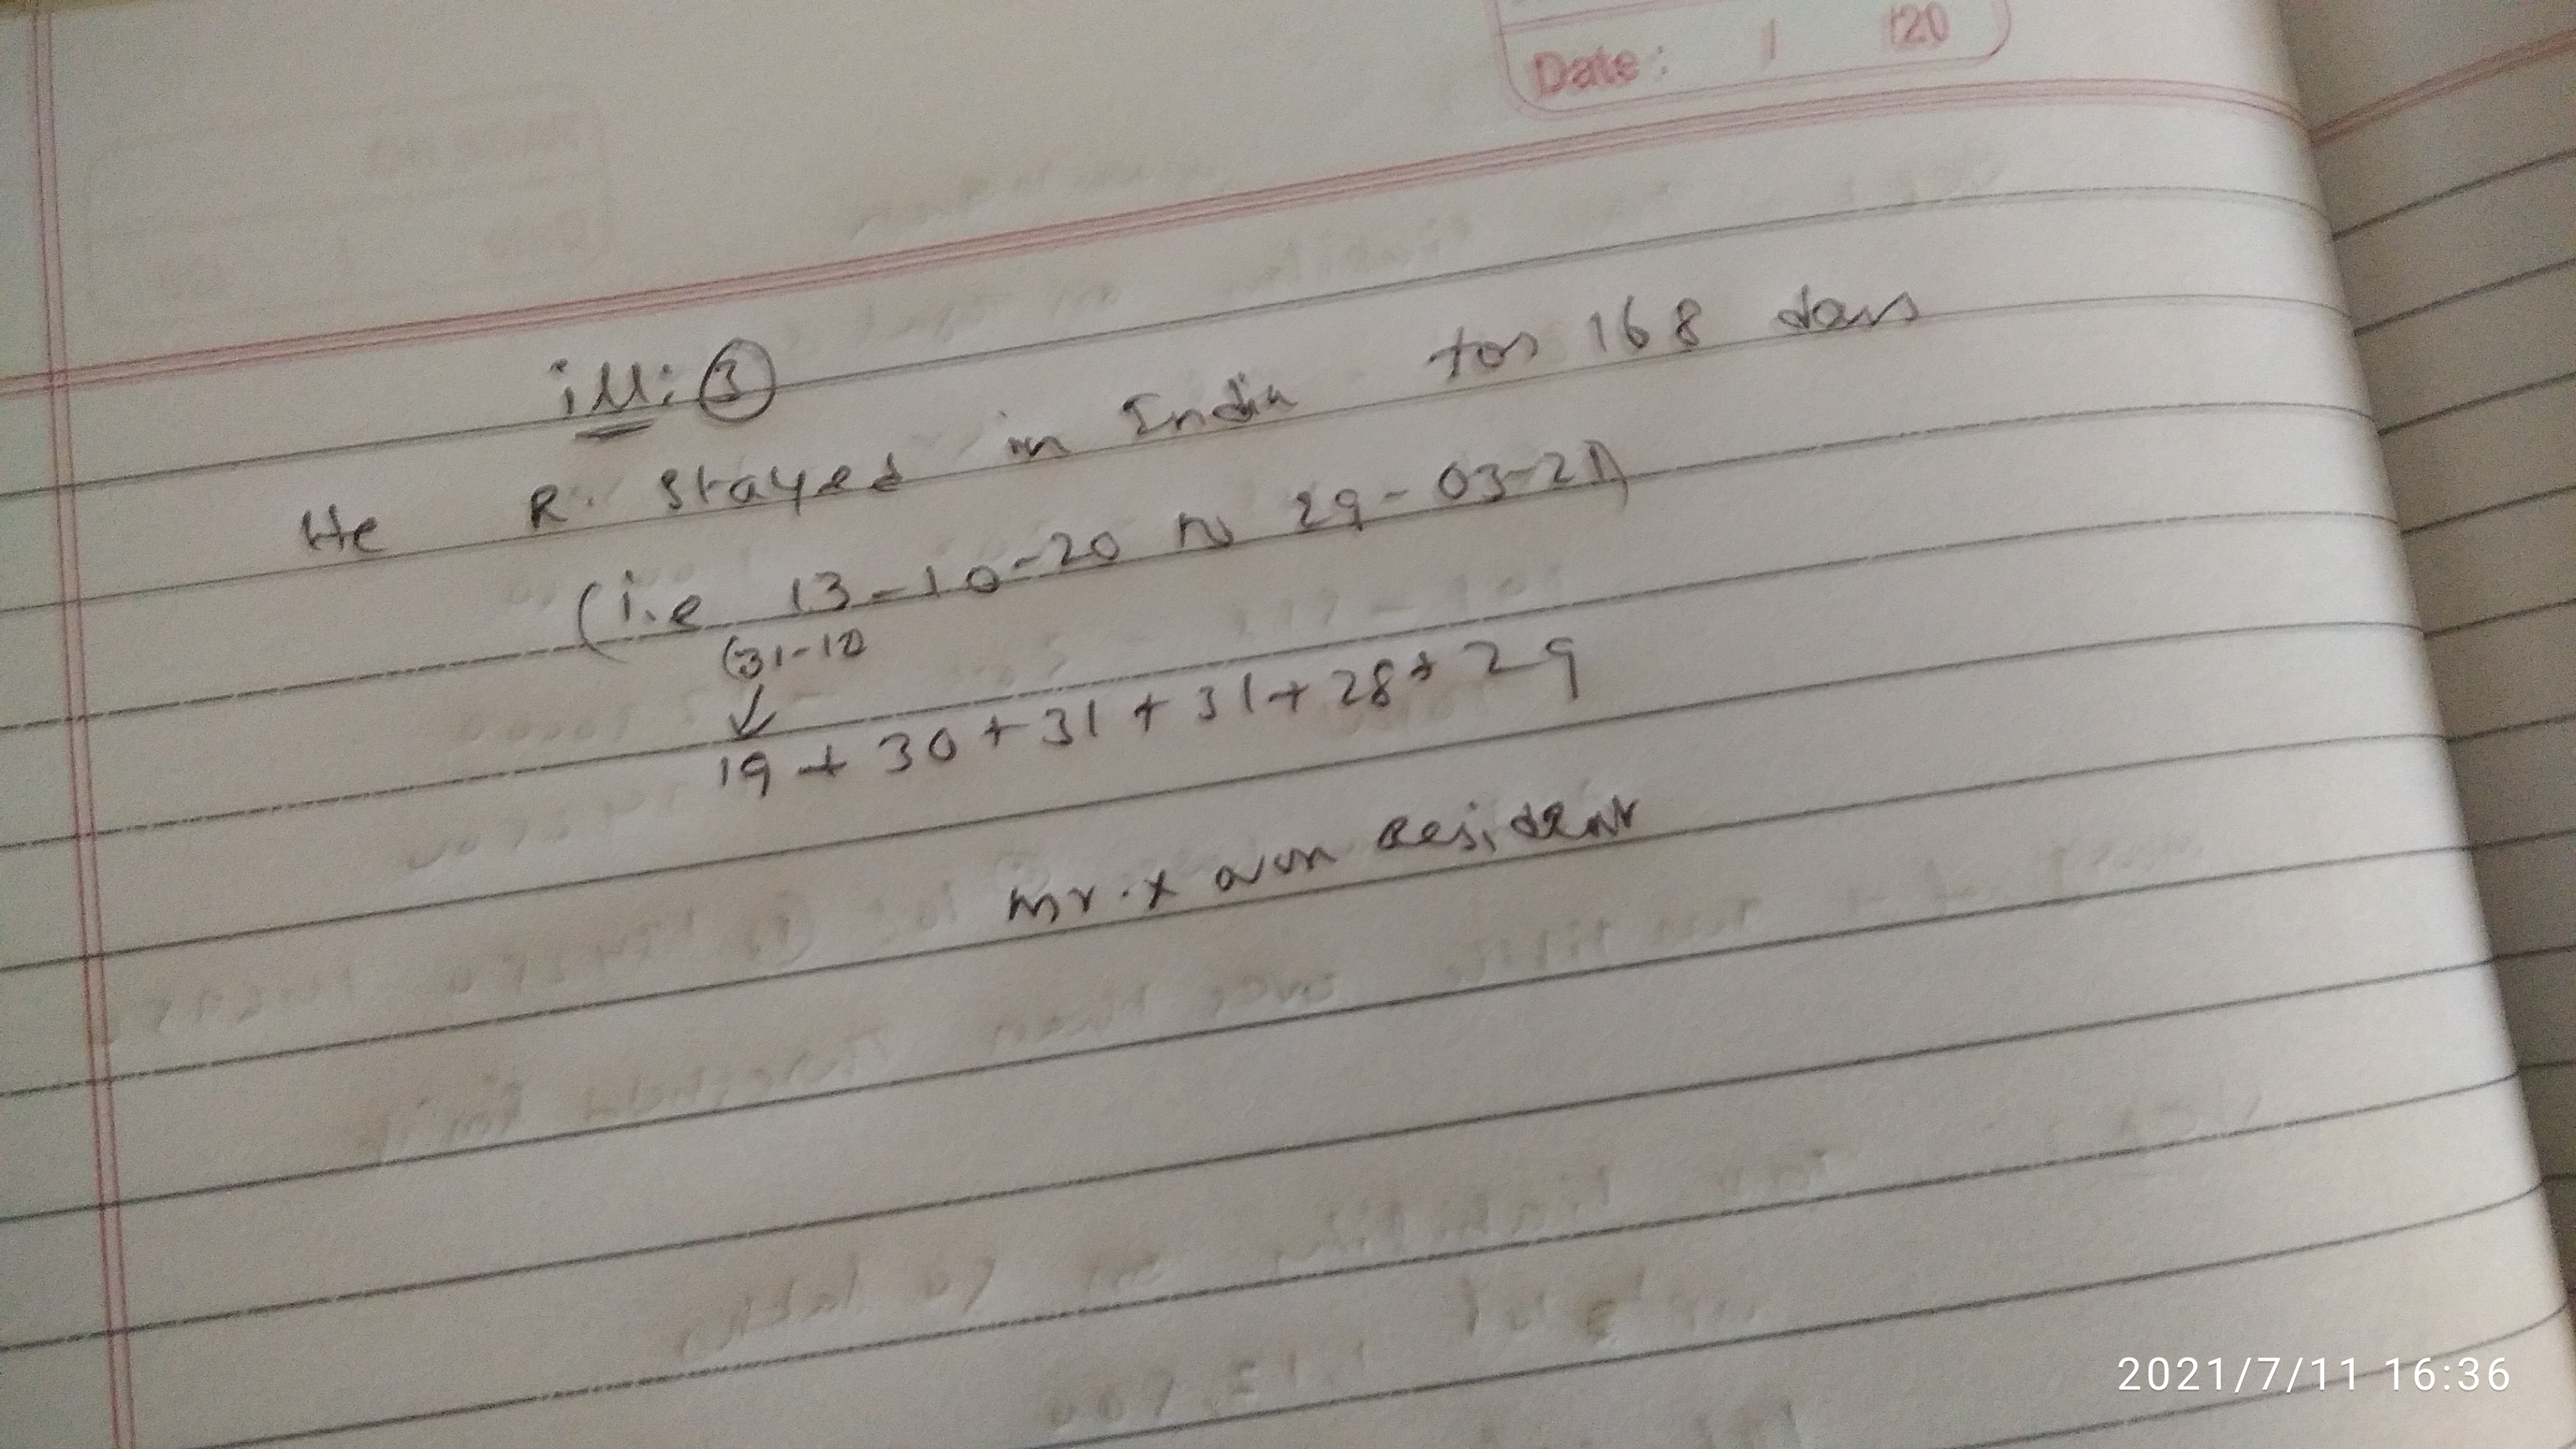 Date: / /20
ill: ③
He R. stayed in India for 168 days
(i.e 13-10-20 to 29-03-21)
(31-12)
19 + 30 + 31 + 31 + 28 + 29
Mr. X non Resident
2021/7/11 16:36